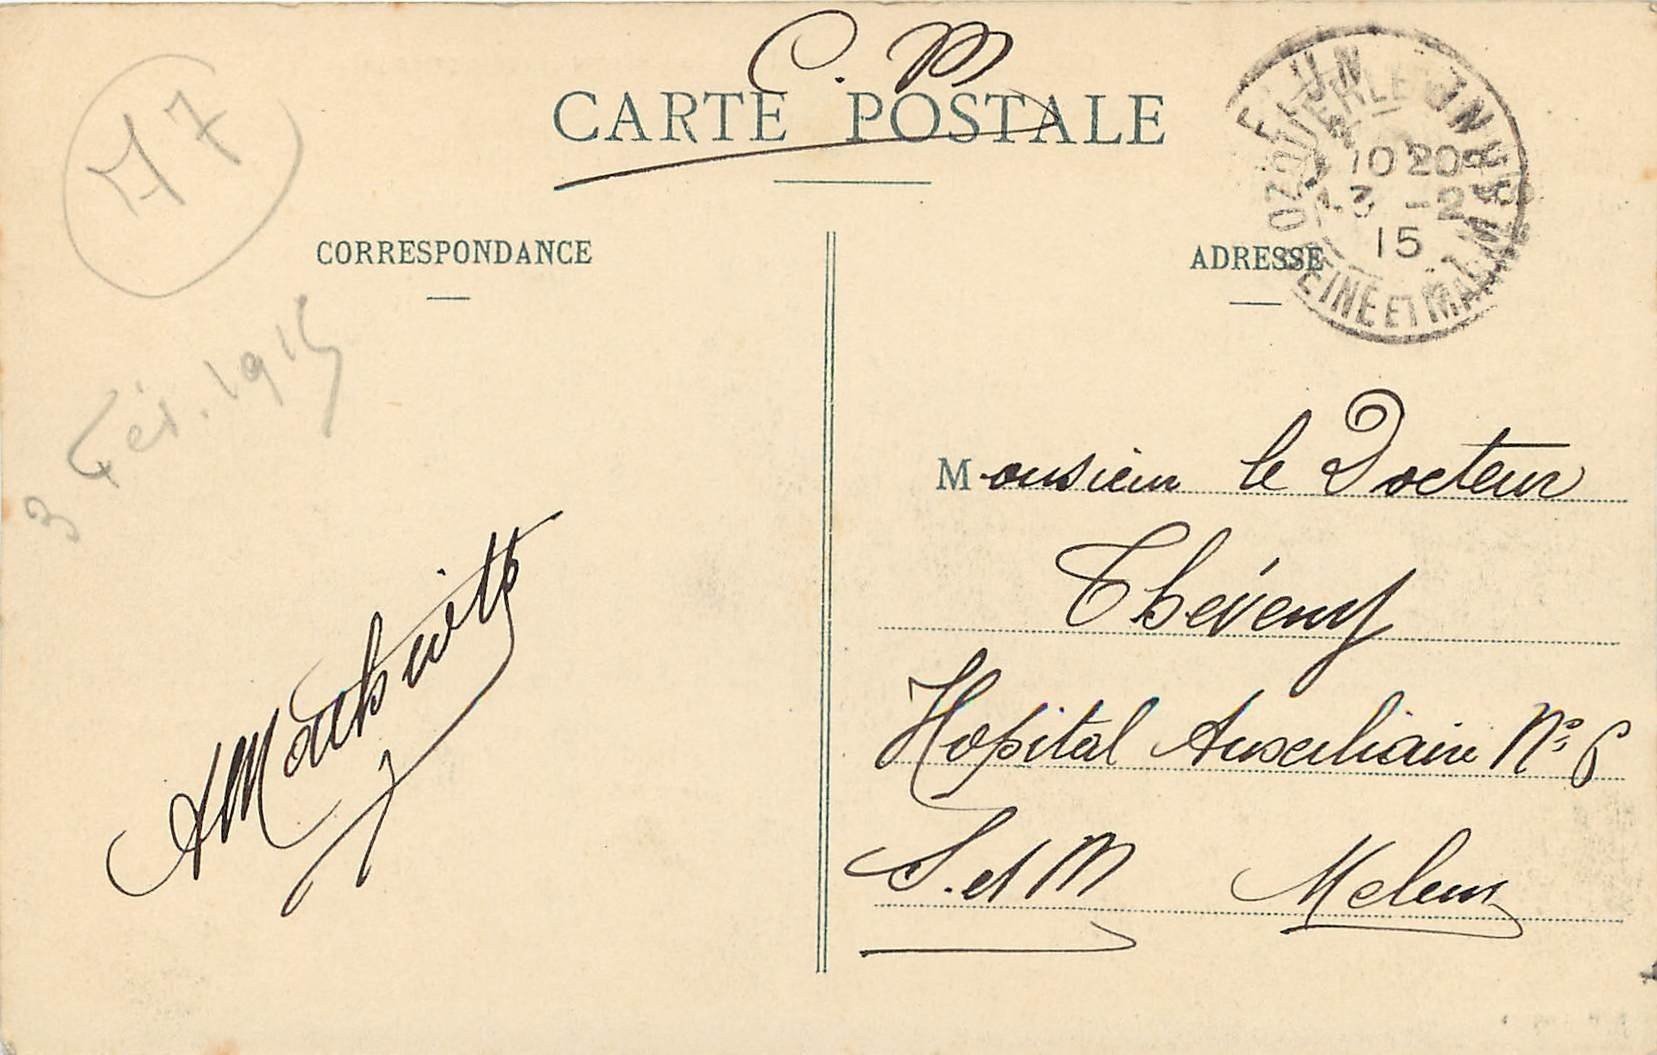 C. M
CARTE POSTALE
77
OZOUER LE
SEINE ET MARNE
10 20
3 -2
15
CORRESPONDANCE
ADRESSE
3 Fév. 1915
Monsieur le Docteur
Théveny
Hopital Auxiliaire No 6
S. et M Melun